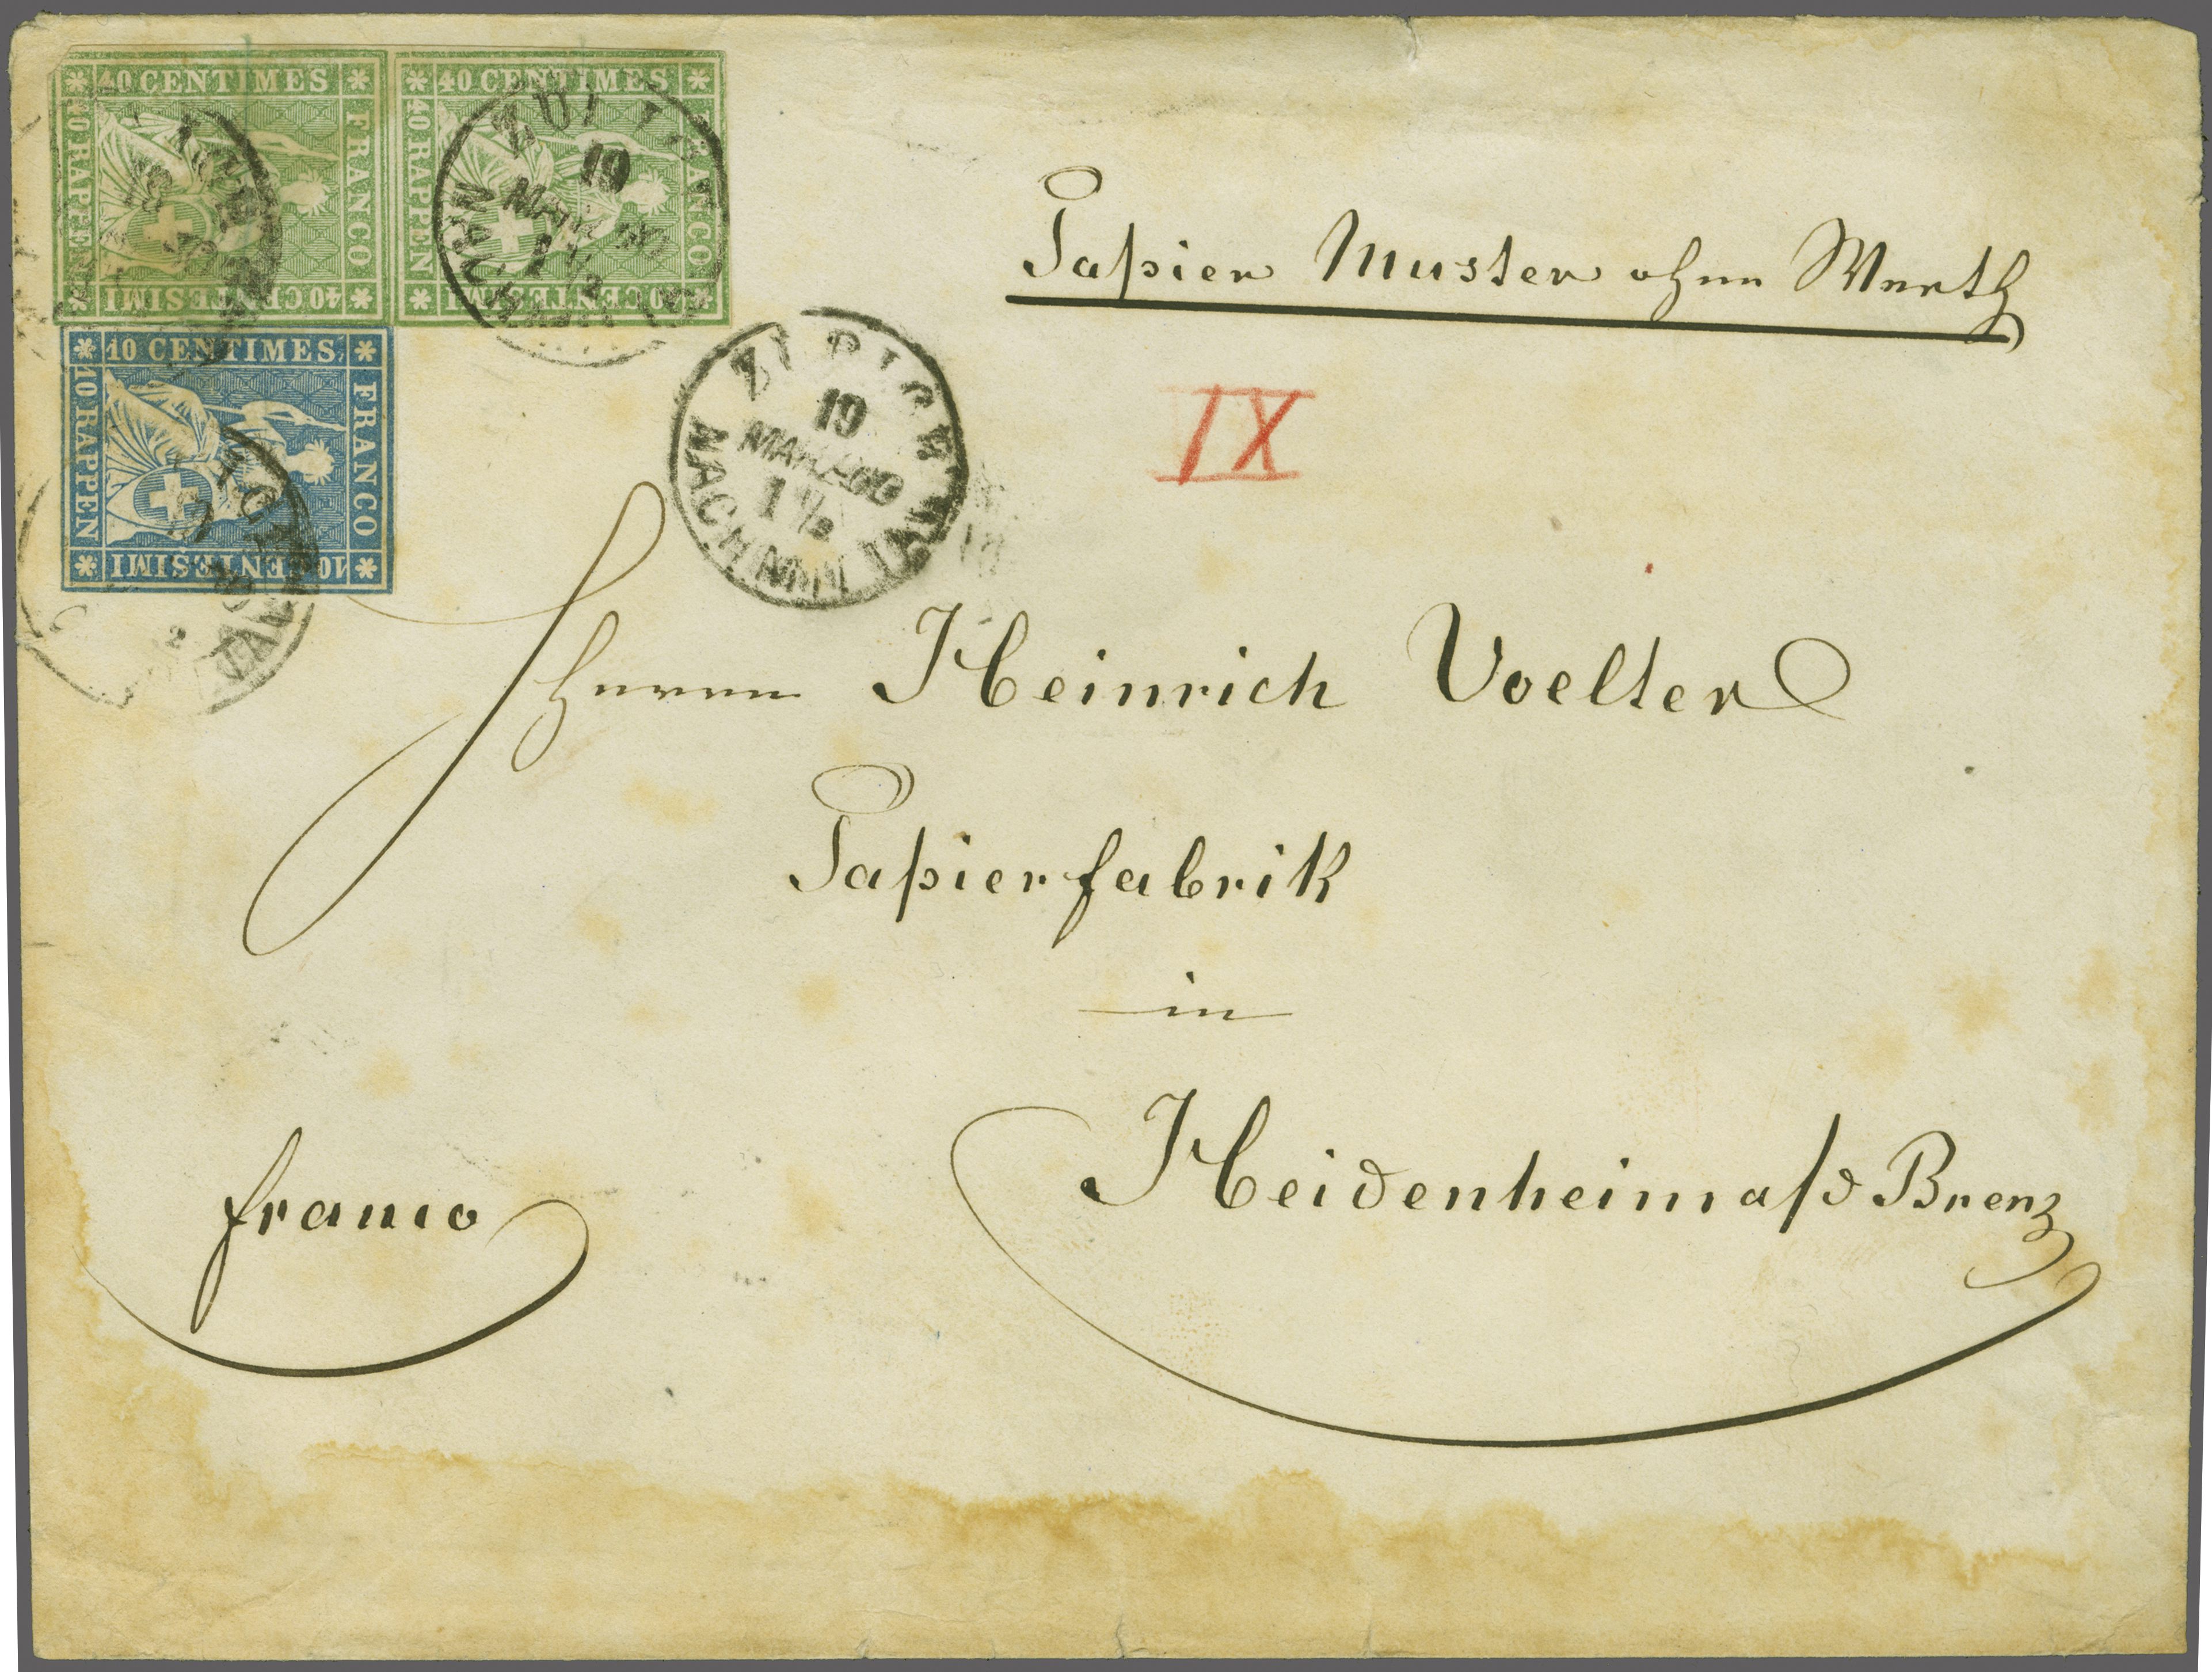 40 CENTIMES
FRANCO
40 RAPPEN
40 CENTESIMI
40 CENTIMES
FRANCO
40 RAPPEN
40 CENTESIMI
ZÜRICH
19
MÄRZ
NACHMITTAG
10 CENTIMES
FRANCO
10 RAPPEN
10 CENTESIMI
ZÜRICH
19
MÄRZ 60
1 1/2
NACHMITTAG
Papier Muster ohne Werth
IX
Herrn Heinrich Voelter
Papierfabrik
in
Heidenheim a/d Brenz
franco